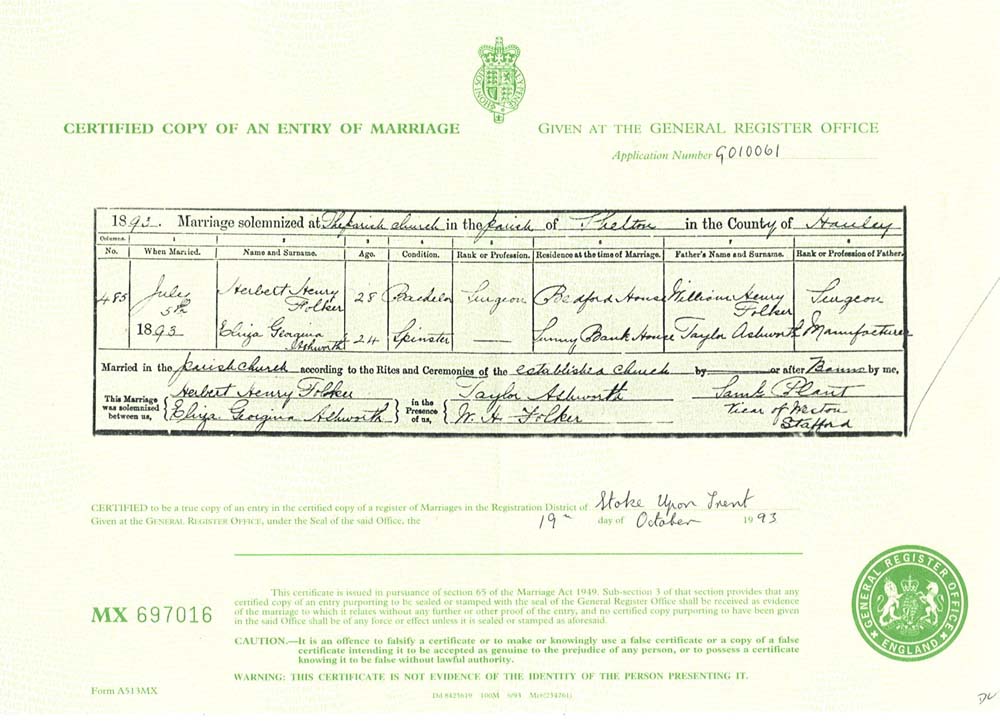 CERTIFIED COPY OF AN ENTRY OF MARRIAGE
GIVEN AT THE GENERAL REGISTER OFFICE
Application Number G010061
1893. Marriage solemnized at The parish church in the parish of Shelton in the County of Hanley
Columns. 1 2 3 4 5 6 7 8
No. When Married. Name and Surname. Age. Condition. Rank or Profession. Residence at the time of Marriage. Father's Name and Surname. Rank or Profession of Father.
485 July 5th 1893
Herbert Henry Folker 28 Bachelor Surgeon Bedford House William Henry Folker Surgeon
Eliza Georgina Ashworth 24 Spinster — Sunny Bank House Taylor Ashworth Manufacturer
Married in the parish church according to the Rites and Ceremonies of the established church by or after Banns by me,
This Marriage was solemnized between us,
Herbert Henry Folker
Eliza Georgina Ashworth
in the Presence of us,
Taylor Ashworth
W. H. Folker
Saml. Plant
Vicar of Weston
Stafford
CERTIFIED to be a true copy of an entry in the certified copy of a register of Marriages in the Registration District of Stoke Upon Trent
Given at the GENERAL REGISTER OFFICE, under the Seal of the said Office, the 19th day of October 1993
MX 697016
This certificate is issued in pursuance of section 65 of the Marriage Act 1949. Sub-section 3 of that section provides that any
certified copy of an entry purporting to be sealed or stamped with the seal of the General Register Office shall be received as evidence
of the marriage to which it relates without any further or other proof of the entry, and no certified copy purporting to have been given
in the said Office shall be of any force or effect unless it is sealed or stamped as aforesaid.
CAUTION.—It is an offence to falsify a certificate or to make or knowingly use a false certificate or a copy of a false
certificate intending it to be accepted as genuine to the prejudice of any person, or to possess a certificate
knowing it to be false without lawful authority.
WARNING: THIS CERTIFICATE IS NOT EVIDENCE OF THE IDENTITY OF THE PERSON PRESENTING IT.
GENERAL REGISTER OFFICE
ENGLAND
Form A513MX
Dd 8425619 100M 6/93 Mcr(234761)